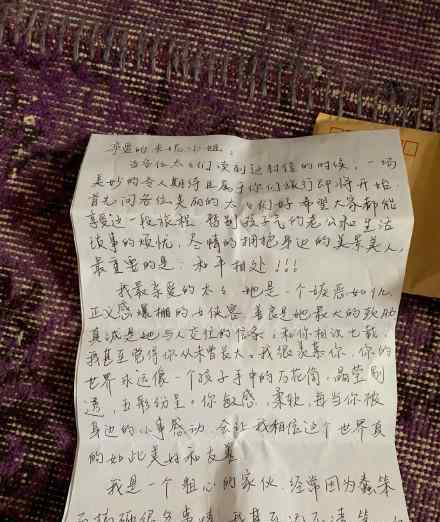 亲爱的朱悦小姐:
当各位太太们读到这封信的时候,一场
美妙的令人期待且属于你们旅行即将开始.
首先问各位美丽的太太们好 希望大家都能
享受这一段旅程 暂别孩子气的老公和生活
琐事的烦忧,尽情的拥抱身边的美景美人,
最重要的是:和平相处!!!
我最亲爱的太太 她是一个嫉恶如仇
正义感爆棚的女侠客.善良是她最大的软肋
真诚是她与人交往的信条.和你相识七载,
我甚至觉得你从未曾长大.我很羡慕你.你的
世界永远像一个孩子手中的万花筒,晶莹剔
透,五彩纷呈.你敏感,柔软,每当你被
身边的小事感动.会让我相信这个世界真
的如此美好和友善.
我是一个粗心的家伙,经常因为蠢笨